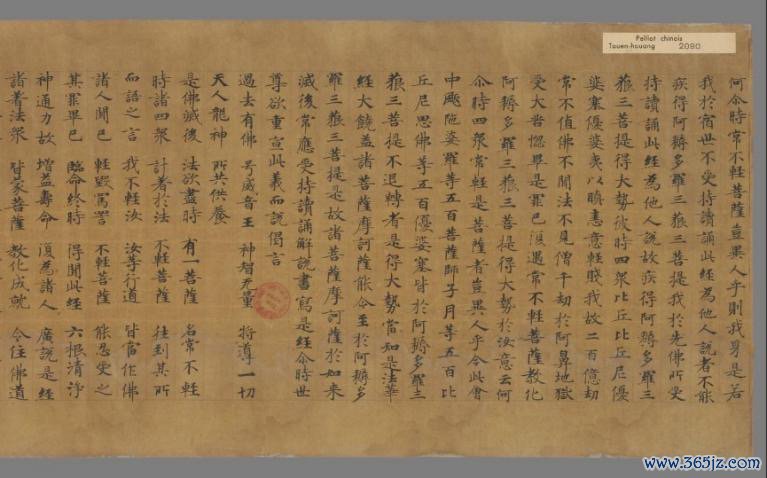 Pelliot chinois
Touen-houang 2090
何尒時常不輕菩薩豈異人乎則我身是若
我於宿世不受持讀誦此經為他人說者不能
疾得阿耨多羅三藐三菩提我於先佛所受
持讀誦此經為他人說故疾得阿耨多羅三
藐三菩提得大勢彼時四衆比丘比丘尼優
婆塞優婆夷以瞋恚意輕賤我故二百億劫
常不值佛不聞法不見僧千劫於阿鼻地獄
受大苦惱畢是罪已復遇常不輕菩薩教化
阿耨多羅三藐三菩提得大勢於汝意云何
尒時四衆常輕是菩薩者豈異人乎今此會
中颰陁婆羅等五百菩薩師子月等五百比
丘尼思佛等五百優婆塞皆於阿耨多羅三
藐三菩提不退轉者是得大勢當知是法華
經大饒益諸菩薩摩訶薩能令至於阿耨多
羅三藐三菩提是故諸菩薩摩訶薩於如来
滅後常應受持讀誦解說書寫是經尒時世
尊欲重宣此義而說偈言
過去有佛 号威音王 神智无量 將導一切
天人龍神 所共供養
是佛滅後 法欲盡時 有一菩薩 名常不輕
時諸四衆 計著於法 不輕菩薩 往到其所
而語之言 我不輕汝 汝等行道 皆當作佛
諸人聞已 輕毀罵詈 不輕菩薩 能忍受之
其罪畢已 臨命終時 得聞此經 六根清淨
神通力故 增益壽命 復為諸人 廣說是經
諸著法衆 皆蒙菩薩 教化成就 令住佛道
www.365jz.com